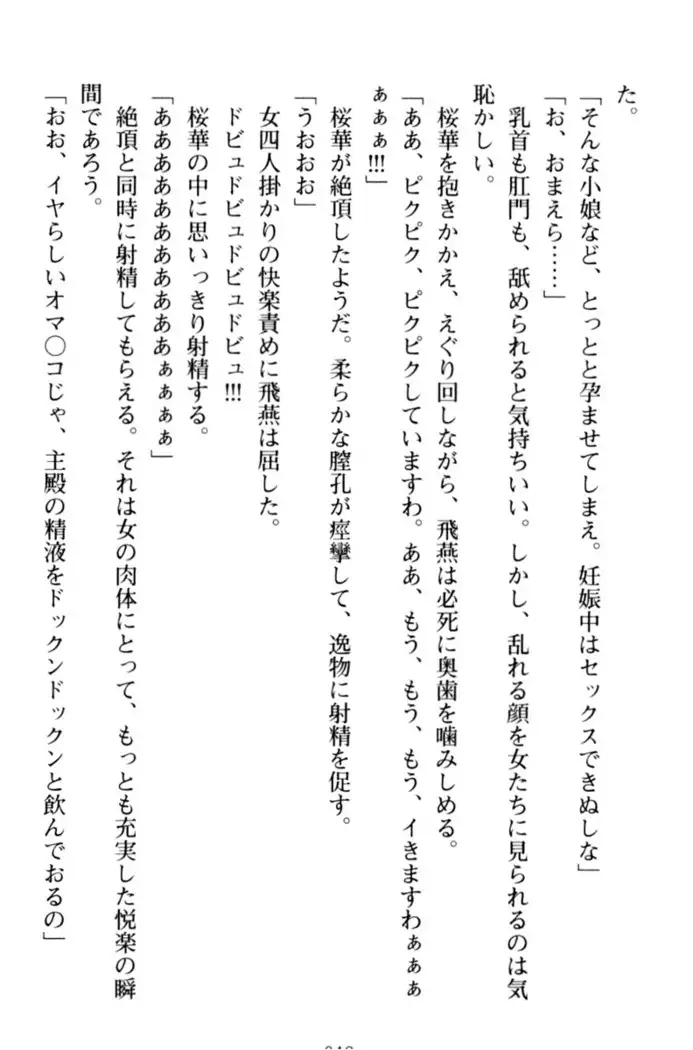 た。
「そんな小娘など、とっとと孕ませてしまえ。妊娠中はセックスできぬしな」
「お、おまえら……」
乳首も肛門も、舐められると気持ちいい。しかし、乱れる顔を女たちに見られるのは気
恥かしい。
桜華を抱きかかえ、えぐり回しながら、飛燕は必死に奥歯を噛みしめる。
「ああ、ピクピク、ピクピクしていますわ。ああ、もう、もう、もう、イきますわぁぁぁ
ぁぁぁ!!!」
桜華が絶頂したようだ。柔らかな膣孔が痙攣して、逸物に射精を促す。
「うおおお」
女四人掛かりの快楽責めに飛燕は屈した。
ドビュドビュドビュドビュ!!!
桜華の中に思いっきり射精する。
「ああああああああああああぁぁぁぁ」
絶頂と同時に射精してもらえる。それは女の肉体にとって、もっとも充実した悦楽の瞬
間であろう。
「おお、イヤらしいオマ〇コじゃ、主殿の精液をドックンドックンと飲んでおるの」